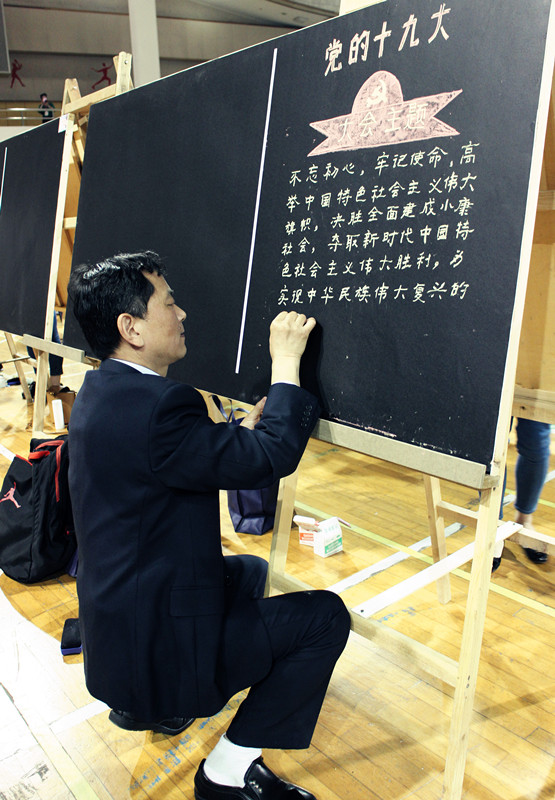 党的十九大
大会主题
不忘初心，牢记使命，高
举中国特色社会主义伟大
旗帜，决胜全面建成小康
社会，夺取新时代中國特
色社会主义伟大胜利，为
实现中华民族伟大复兴的